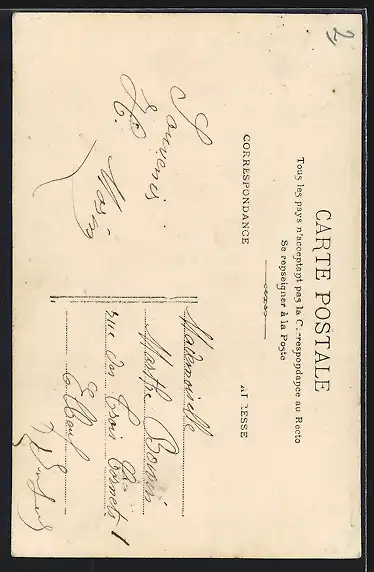 2
CARTE POSTALE
Tous les pays n'acceptant pas la Correspondance au Recto
Se renseigner à la Poste
CORRESPONDANCE
ADRESSE
Souvenir
Mademoiselle
Marthe
rue des Trois Cornets 1
Elbeuf